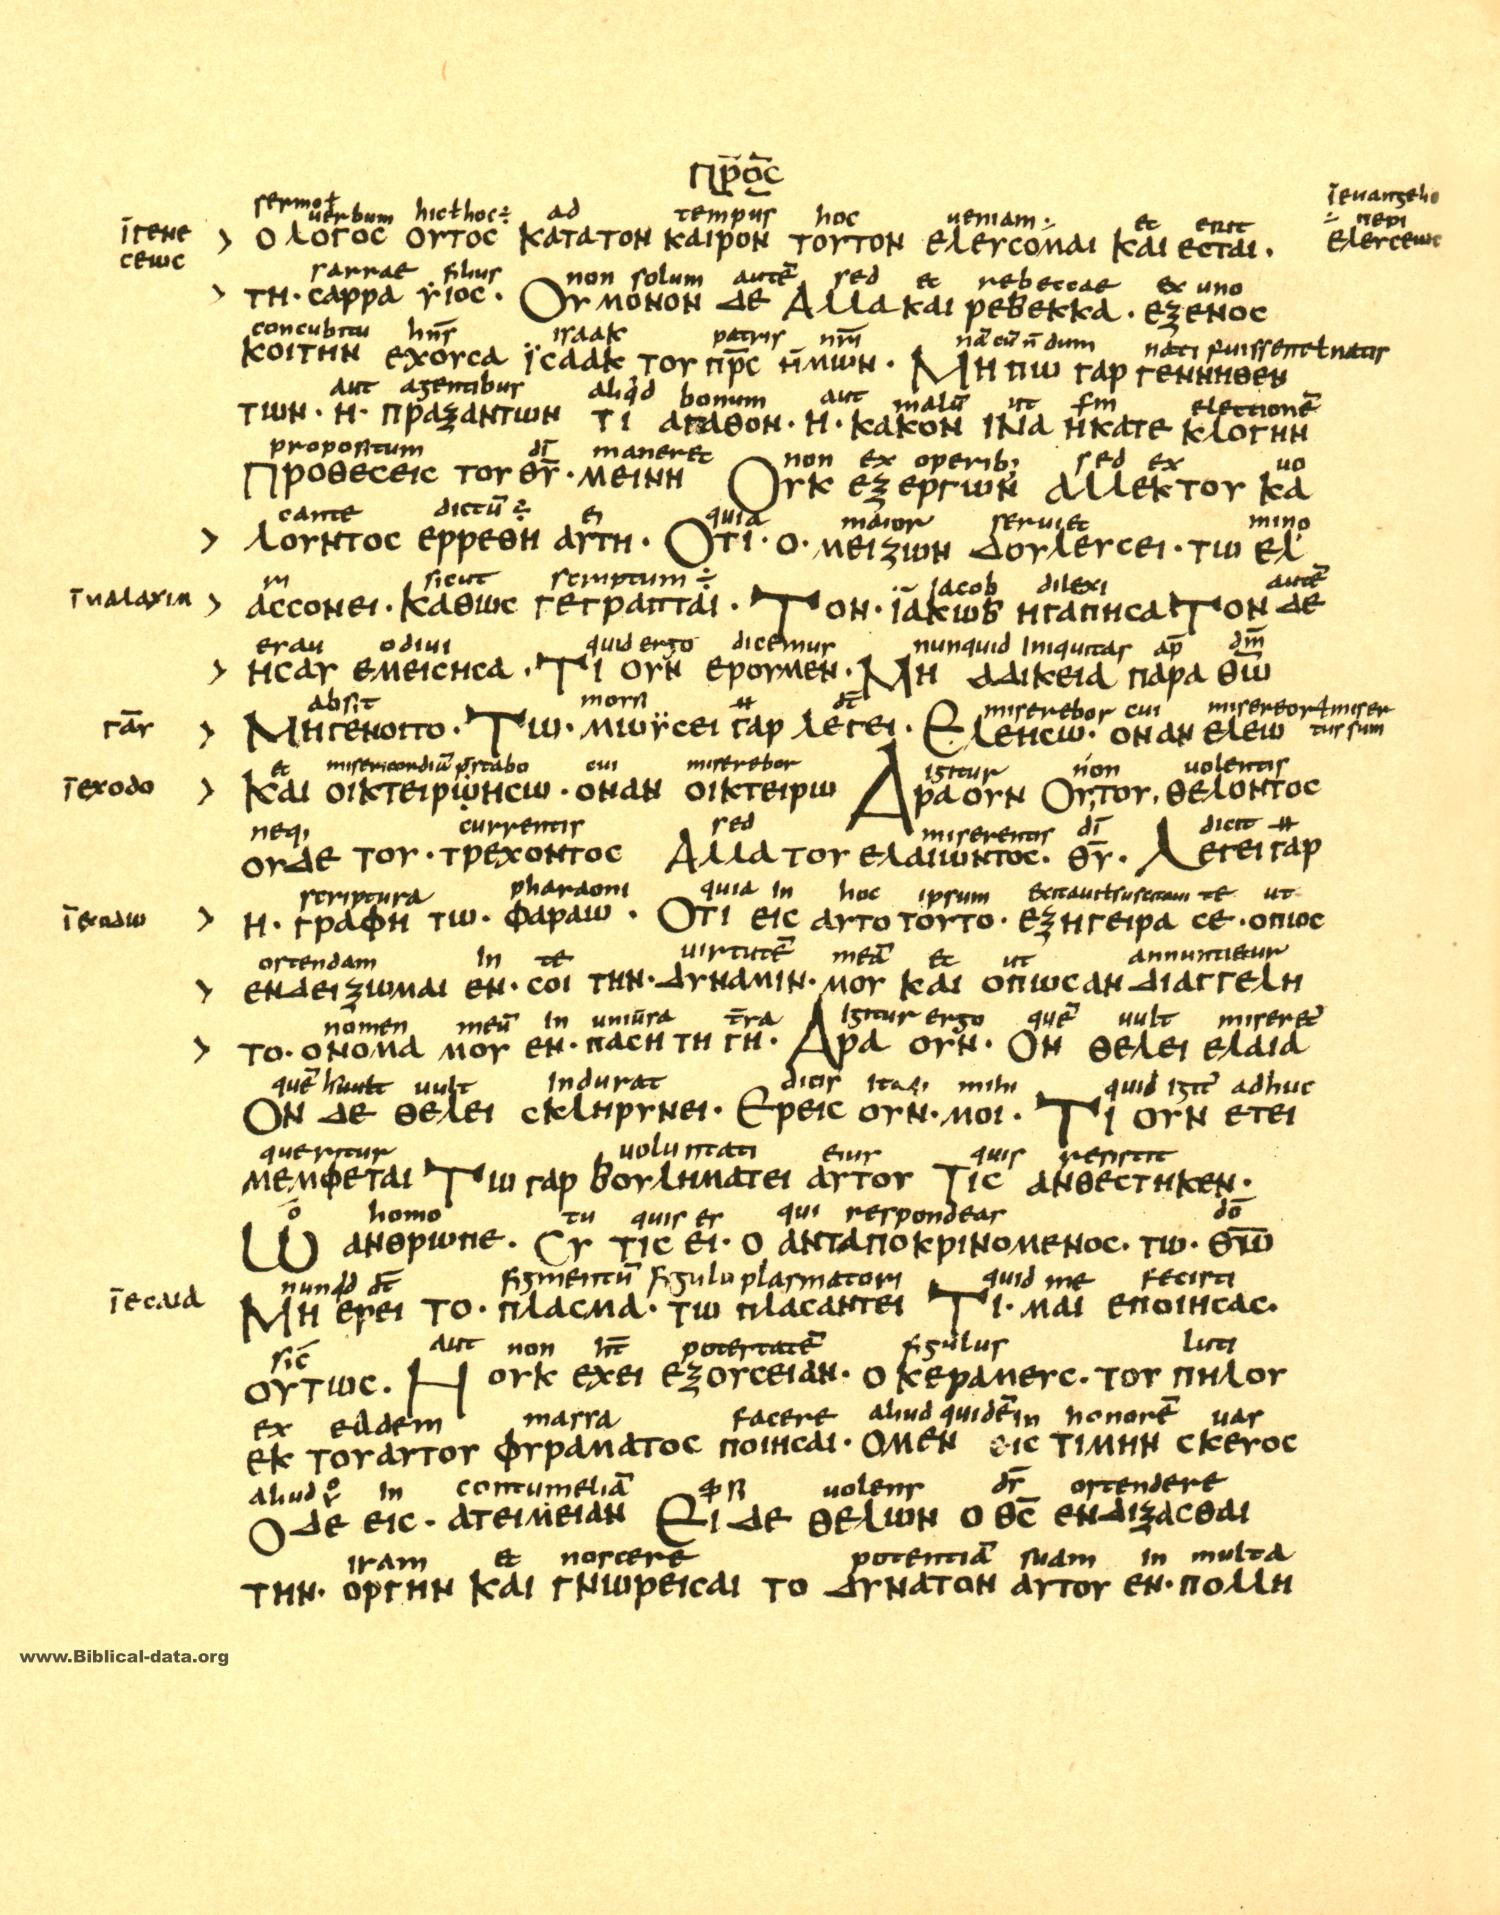 Π̅Ρ̅Ο̅Σ̅
sermo ł uerbum hic ł hoc ÷ ad tempus hoc ueniam et erit
ī γενε > ο λογος ουτος κατα τον καιρον τουτον ελευσομαι και εσται · ī euangelio
σεως ÷ περι ελευσεως
sarrae filius non solum autē sed et rebeccae ex uno
> τη · σαρρα ϋιος · Ου μονον δε Αλλα και ρεβεκκα · εξ ενος
concubitu hn̄s isaak patris nr̄i nā cū n̄dum nati fuissent ł natis
κοιτην εχουσα ϊσαακ του π̅ρ̅ς ημων · Μηπω γαρ γεννηθεν
aut agentibus aliqd bonum aut malū ut electionē
των · η · πραξαντων τι αγαθον · η · κακον ινα η κατε κλογην
propositum dī maneret non ex operib; sed ex uo
Προθεσεις του θ̅υ̅ · μεινη Ουκ εξ εργων αλλ εκ του κα
cante dictū ÷ ei quia maior seruiet mino
> λουντος ερρεθη αυτη · Οτι · ο · μειζων δουλευσει · τω ελ
ri sicut scriptum ÷ iacob dilexi autē
ī μαλαχιη > ασσονει · καθως γεγραπται · Τον · ϊακωβ ηγαπησα Τον δε
esau odiui quid ergo dicemus nunquid iniquitas ap̄ dm̄
> ησαυ εμεισησα · Τι ουν ερουμεν · Μη αδικεια παρα θ̅ω̅
absit mosi dc̄ miserebor cui misereor ł miser
tus sum
γαρ > Μη γενοιτο · Τω · μωϋσει γαρ λεγει · Ελεησω · ον αν ελεω
et misericordiā pstabo cui miserebor igitur non uolentis
ī exodo > και οικτειρωησω · ον αν οικτειρω Αρα ουν Ου του · θελοντος
neq; currentis sed miserentis dī dicit
ουδε του · τρεχοντος Αλλα του ελαιωντος · θ̅υ̅ · Λεγει γαρ
scriptura pharaoni quia in hoc ipsum excitaui ł suscitaui te ut
> η · γραφη τω · φαραω · Οτι εις αυτο τουτο · εξηγειρα σε · οπως
ostendam in te uirtutē meā et ut annuntietur
> ενδειξωμαι εν · σοι την · δυναμιν · μου και οπως αν διαγγελη
nomen meū in uniūsa t̄ra igitur ergo quē uult miseret̄
> το · ονομα μου εν · παση τη γη · Αρα ουν · Ον θελει ελαια
quē uult indurat dicis itaq; mihi quid igit̄ adhuc
Ον δε θελει σκληρυνει · Ερεις ουν · μοι · Τι ουν ετει
queritur uoluntati eius quis resistit
μεμφεται Τω γαρ βουληματει αυτου Τις ανθεστηκεν ·
o homo tu quis es qui respondeas dō
Ω ανθρωπε · Συ τις ει · ο ανταποκρινομενος · τω · θ̅ω̅
nunqd dc̄ figmentū figulo plasmatori quid me fecisti
ī εσαια Μη ερει το · πλασμα · τω πλασαντει Τι · μαι εποιησας ·
sic̄ aut non ht̄ potestatē figulus luti
ουτως · Η ουκ εχει εξουσειαν · ο κεραμευς · του πηλου
ex eadem massa facere aliud quidē in honorē uas
εκ του αυτου φυραματος ποιησαι · Ο μεν εις τιμην σκευος
aliud in contumeliā uolens ds̄ ostendere
Ο δε εις · ατειμειαν Ει δε θελων ο θ̅ς̅ ενδιξασθαι
iram et noscere potentiā suam in multa
την · οργην και γνωρεισαι το δυνατον αυτου εν · πολλη
www.Biblical-data.org